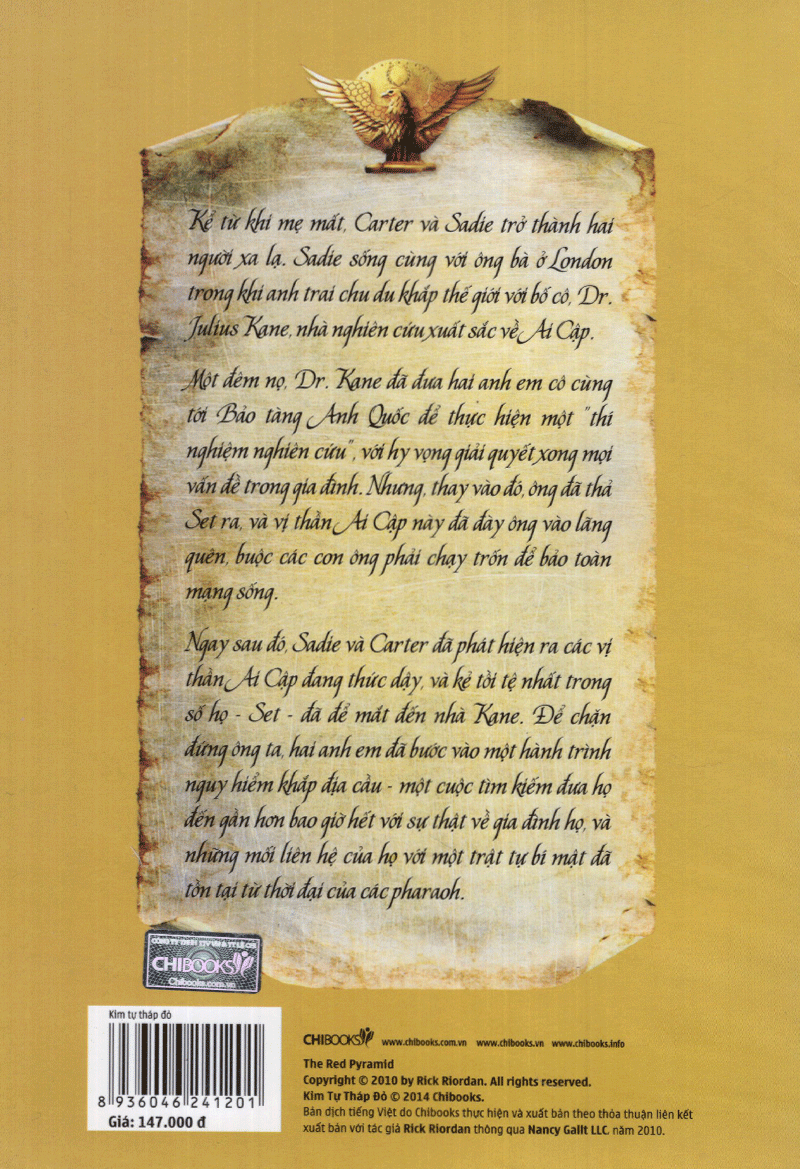 Kể từ khi mẹ mất, Carter và Sadie trở thành hai
người xa lạ. Sadie sống cùng với ông bà ở London
trong khi anh trai chu du khắp thế giới với bố cô, Dr.
Julius Kane, nhà nghiên cứu xuất sắc về Ai Cập.
Một đêm nọ, Dr. Kane đã đưa hai anh em cô cùng
tới Bảo tàng Anh Quốc để thực hiện một "thí
nghiệm nghiên cứu", với hy vọng giải quyết xong mọi
vấn đề trong gia đình. Nhưng, thay vào đó, ông đã thả
Set ra, và vị thần Ai Cập này đã đày ông vào lãng
quên, buộc các con ông phải chạy trốn để bảo toàn
mạng sống.
Ngay sau đó, Sadie và Carter đã phát hiện ra các vị
thần Ai Cập đang thức dậy, và kẻ tồi tệ nhất trong
số họ - Set - đã để mắt đến nhà Kane. Để chặn
đứng ông ta, hai anh em đã bước vào một hành trình
nguy hiểm khắp địa cầu - một cuộc tìm kiếm đưa họ
đến gần hơn bao giờ hết với sự thật về gia đình họ, và
những mối liên hệ của họ với một trật tự bí mật đã
tồn tại từ thời đại của các pharaoh.
CÔNG TY TNHH TTV VH & TT LỆ CHI
CHIBOOKS
Chibooks.com.vn
Kim tự tháp đỏ
8 936046 241201
Giá: 147.000 đ
CHIBOOKS www.chibooks.com.vn www.chibooks.vn www.chibooks.info
The Red Pyramid
Copyright © 2010 by Rick Riordan. All rights reserved.
Kim Tự Tháp Đỏ © 2014 Chibooks.
Bản dịch tiếng Việt do Chibooks thực hiện và xuất bản theo thỏa thuận liên kết
xuất bản với tác giả Rick Riordan thông qua Nancy Gallt LLC, năm 2010.